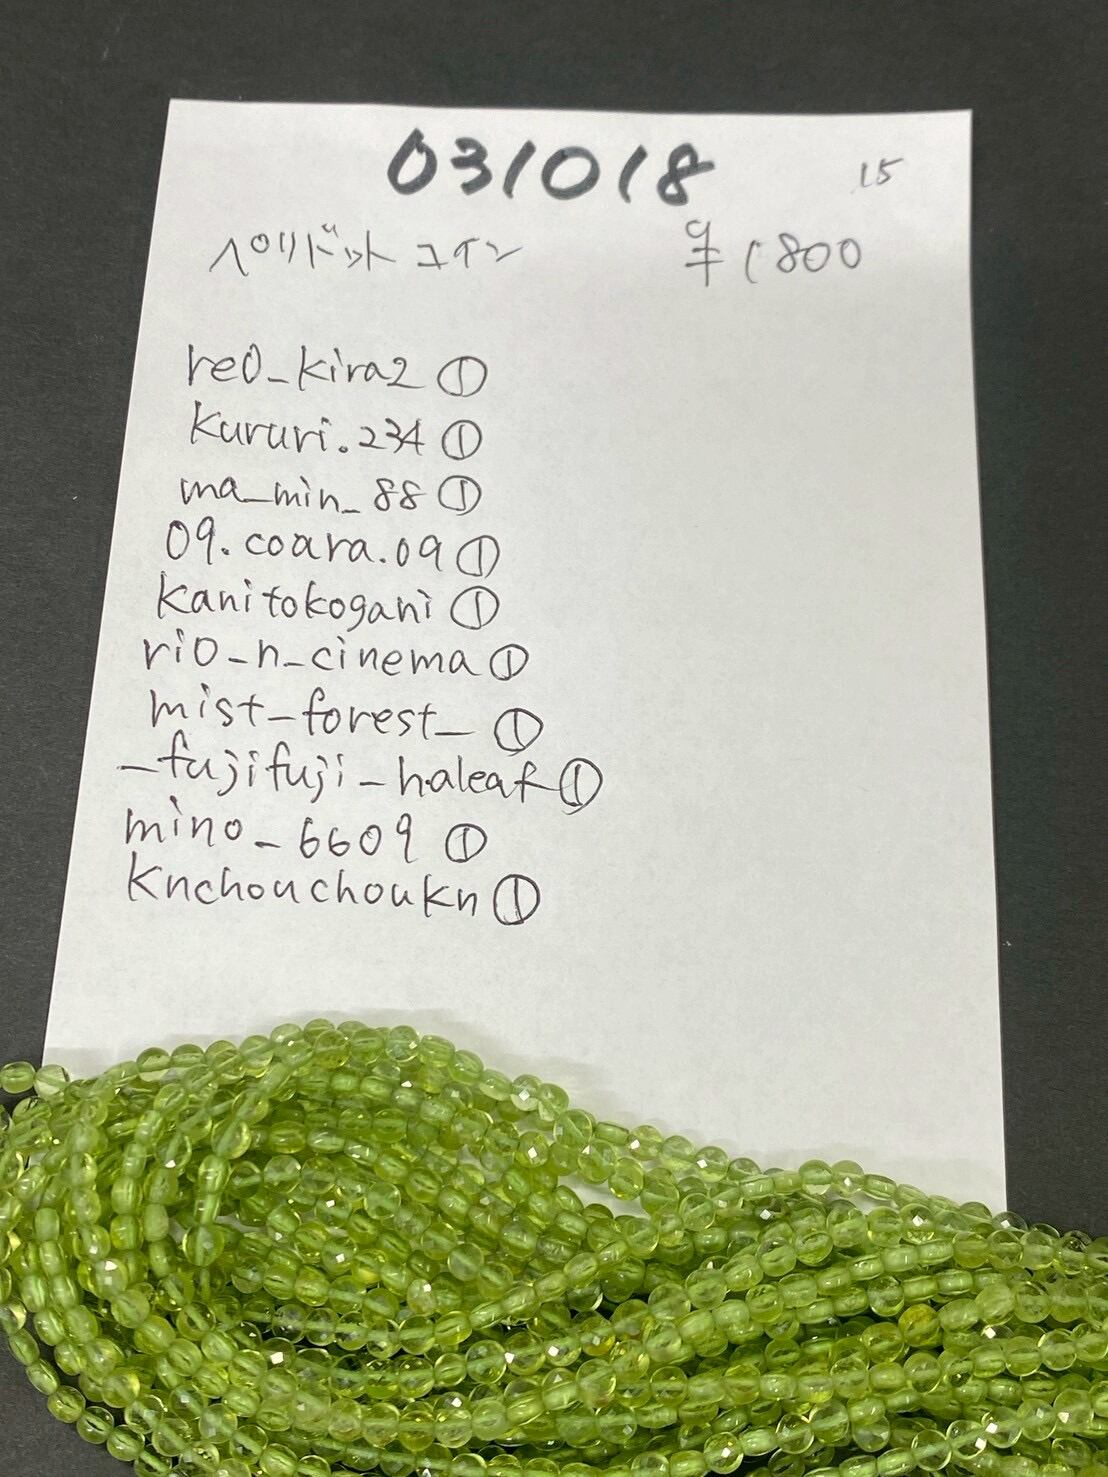 031018 15
ペリドットコイン ¥1800
re0_kira2 ①
kururi.234 ①
ma_min_88 ①
09.coara.09 ①
kanitokogani ①
rio_n_cinema ①
mist_forest_ ①
_fujifuji_haleaf ①
mino_6609 ①
knchouchoukn ①